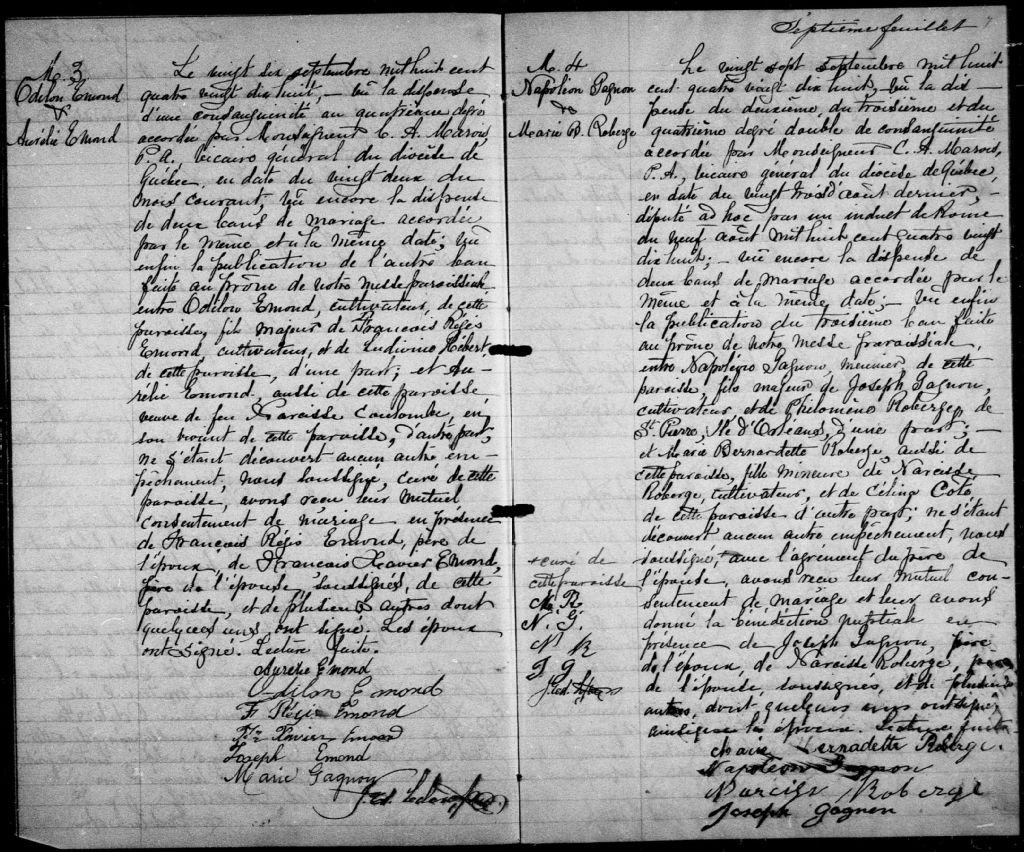 M. 3
Odilon Emond
&
Aurélie Emond
Le vingt six septembre mil huit cent
quatre vingt dix huit, – vû la dispense
d'une consanguinité au quatrième degré
accordée par Monseigneur C. A. Marois,
P. A., vicaire général du diocèse de
Québec, en date du vingt deux du
mois courant, vû encore la dispense
de deux bans de mariage accordée
par le même et à la même date; vû
enfin la publication de l'autre ban
faite au prône de notre messe paroissiale
entre Odilon Emond, cultivateur, de cette
paroisse, fils majeur de François Régis
Emond, cultivateur, et de Ludivine Hébert,
de cette paroisse, d'une part; et Au-
rélie Emond, aussi de cette paroisse
veuve de feu Narcisse Coulombe, en
son vivant de cette paroisse, d'autre part,
ne s'étant découvert aucun autre em-
pêchement, nous soussigné, curé de cette
paroisse, avons reçu leur mutuel
consentement de mariage en présence
de François Régis Emond, père de
l'époux, de François Xavier Emond,
père de l'épouse, soussignés, de cette
paroisse, et de plusieurs autres dont
quelques uns ont signé. Les époux
ont signé. Lecture faite.
Aurélie Emond
Odilon Emond
F Régis Emond
Fr Xavier Emond
Joseph Emond
Marie Gagnon
Septième feuillet 7
M. 4
Napoléon Gagnon
&
Marie B. Roberge
Le vingt sept septembre mil huit
cent quatre vingt dix huit, vû la dis-
pense du deuxième, du troisième et du
quatrième degré double de consanguinité
accordée par Monseigneur C. A. Marois,
P. A., vicaire général du diocèse de Québec,
en date du vingt trois d'août dernier,
député ad hoc par un indult de Rome
du neuf août mil huit cent quatre vingt
dix huit; – vû encore la dispense de
deux bans de mariage accordée par le
même et à la même date; – vû enfin
la publication du troisième ban faite
au prône de notre messe paroissiale,
entre Napoléon Gagnon, meunier, de cette
paroisse, fils majeur de Joseph Gagnon,
cultivateur, et de Philomène Roberge, de
St. Pierre, Ile d'Orléans, d'une part; –
et Marie Bernardette Roberge, aussi de
cette paroisse, fille mineure de Narcisse
Roberge, cultivateur, et de Célina Coté,
de cette paroisse d'autre part; ne s'étant
découvert aucun autre empêchement, nous
soussigné, + avec l'agrément du père de
l'épouse, avons reçu leur mutuel con-
sentement de mariage et leur avons
donné la bénédiction nuptiale en
présence de Joseph Gagnon, père
de l'époux, de Narcisse Roberge, père
de l'épouse, soussignés, et de plusieurs
autres, dont quelques uns ont signé
ainsi que les époux. Lecture faite.
+ curé de
cette paroisse
M. R
N. G.
N R
J G
Marie Bernadette Roberge.
Napoléon Gagnon
Narcisse Roberge
Joseph Gagnon